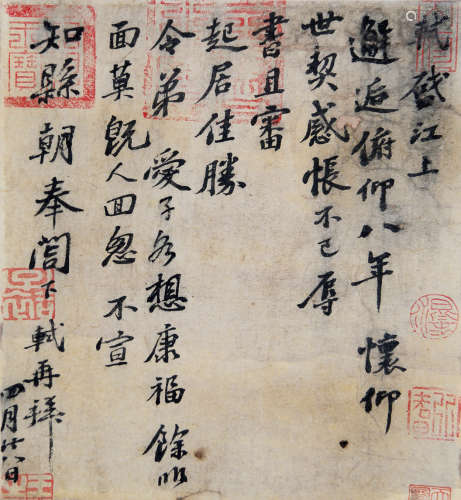 軾啓江上
邂逅俯仰八年懷仰
世契感悵不已辱
書且審
起居佳勝
令弟愛子各想康福餘非
面莫既人回怱怱不宣
知縣朝奉閤下軾再拜
四月廿八日